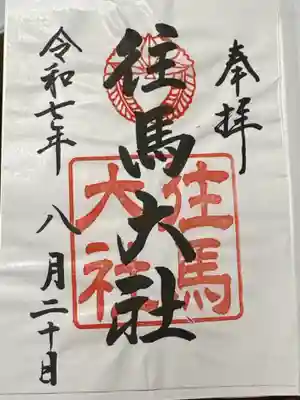 奉拝
往馬大社
往馬
大社
令和七年 八月二十日